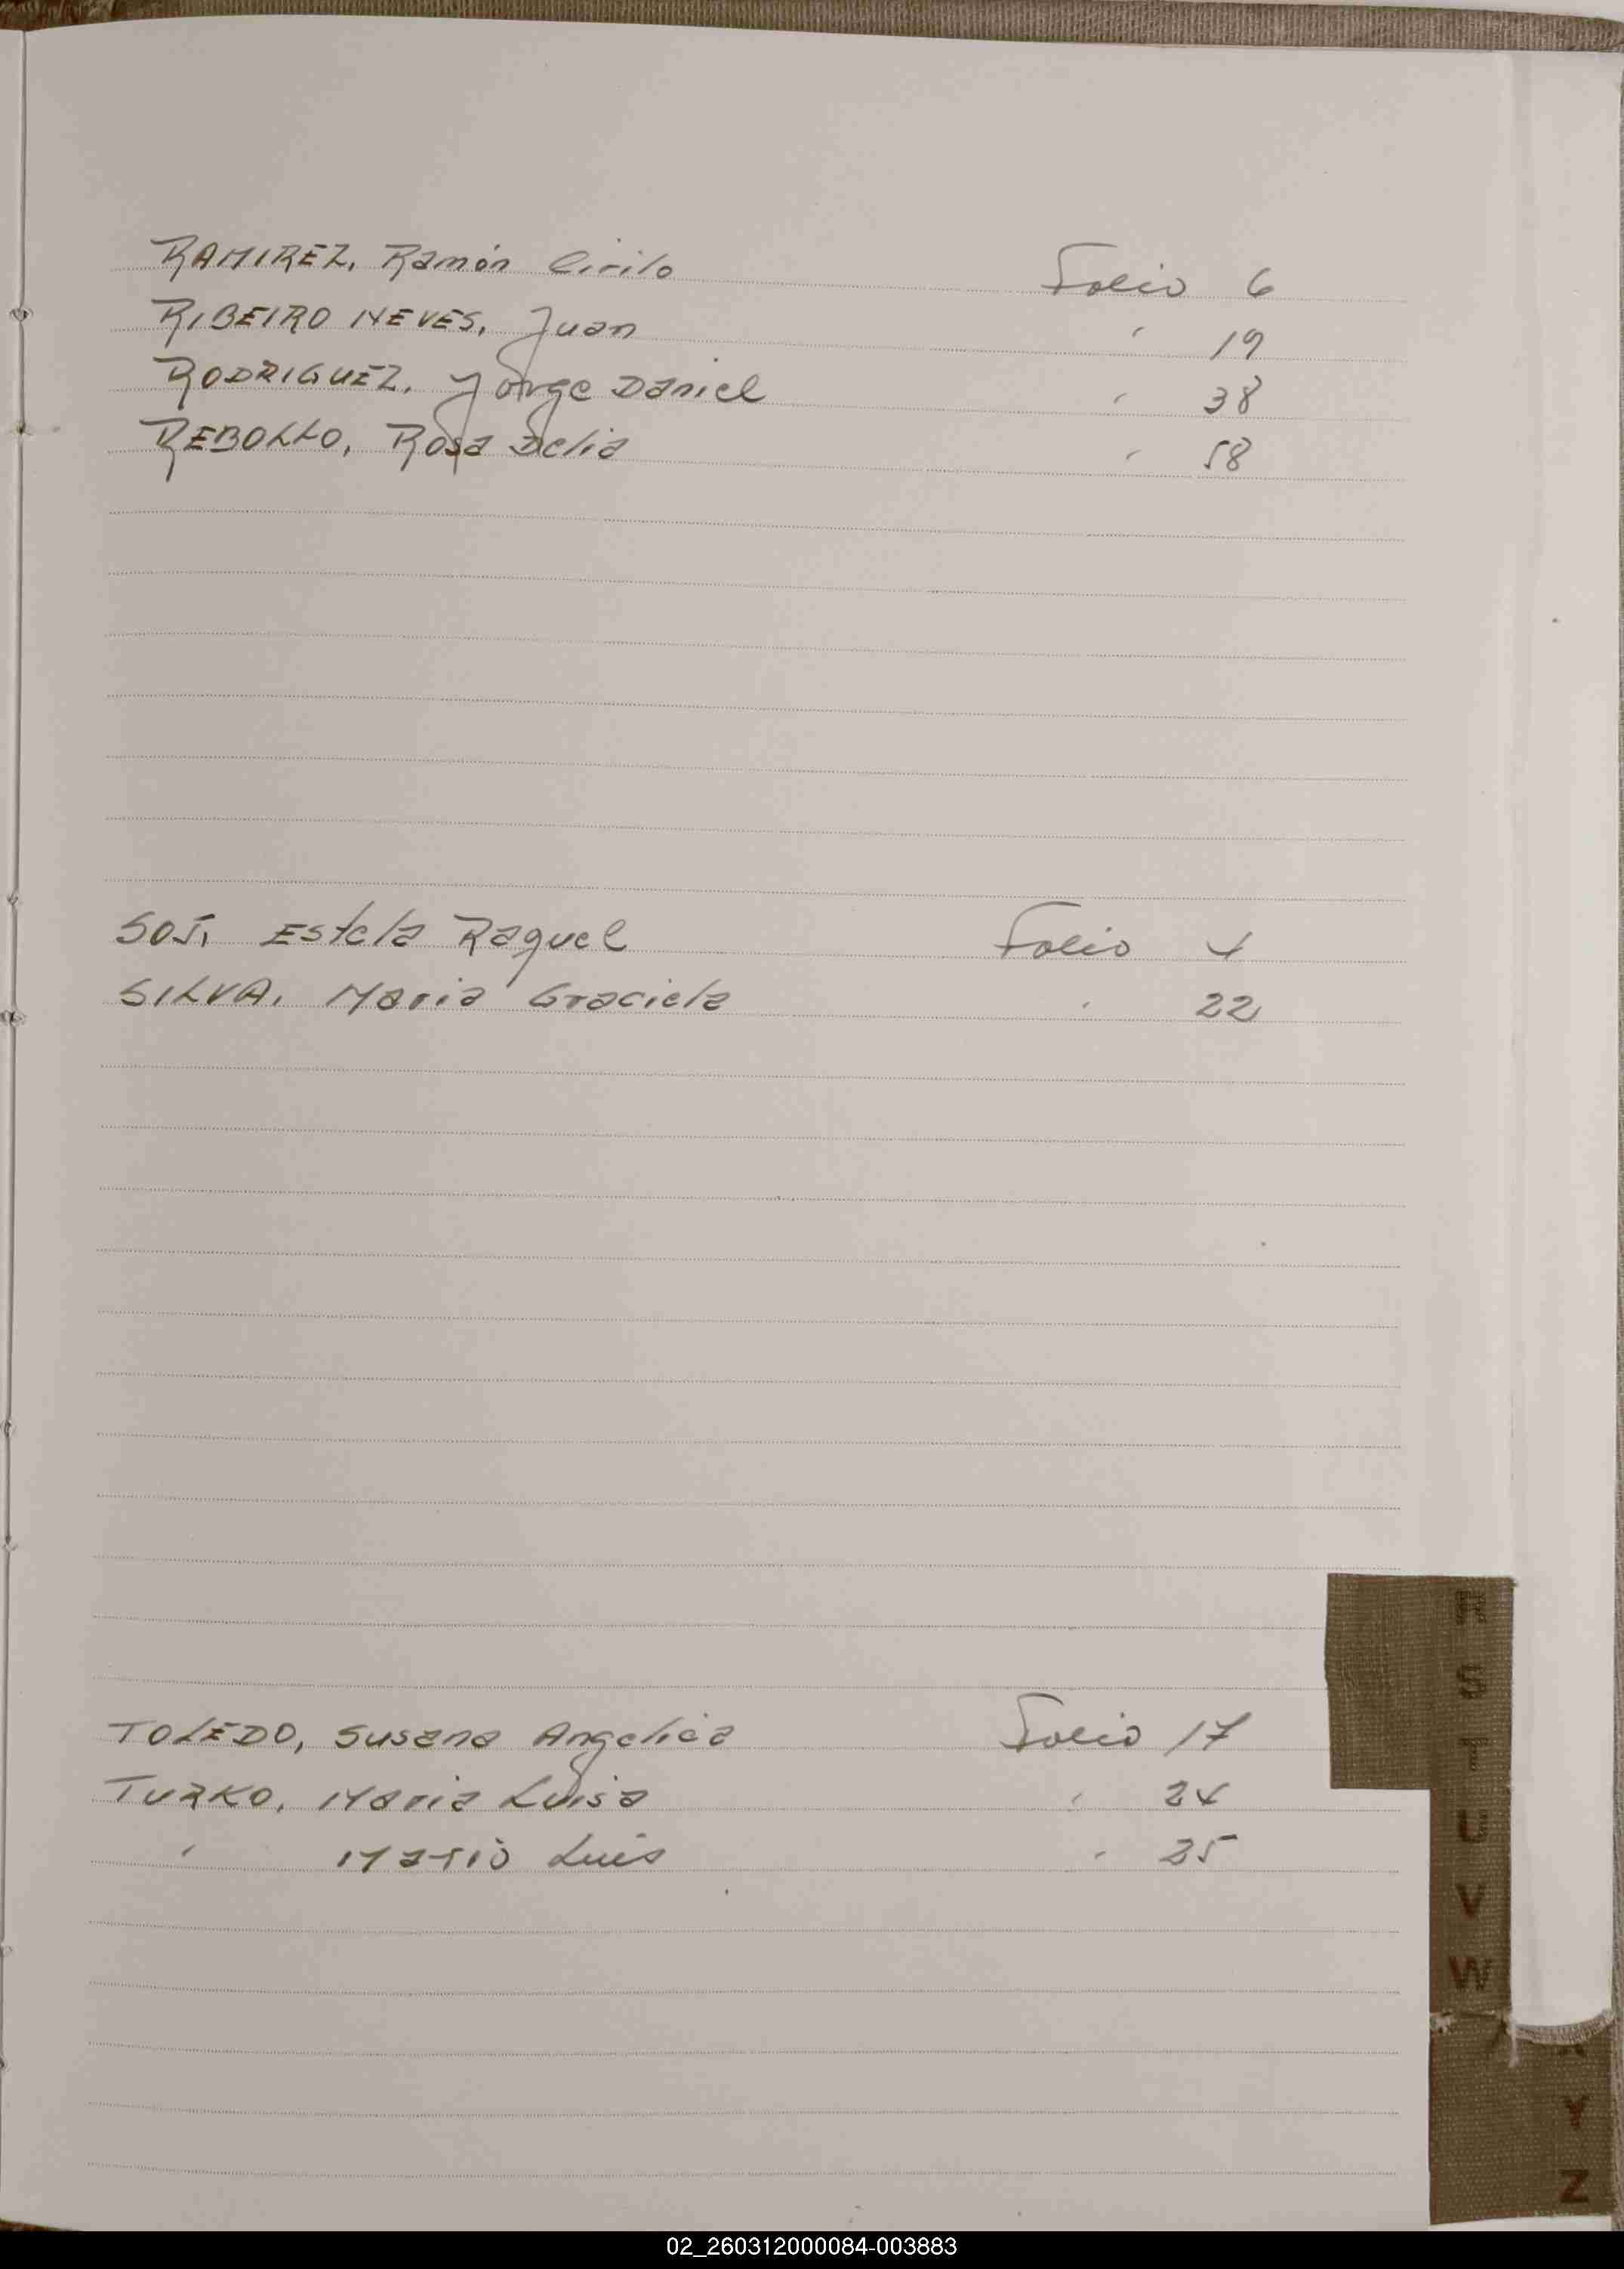 RAMIREZ, Ramón Cirilo Folio 6
RIBEIRO NEVES, Juan " 19
RODRIGUEZ, Jorge Daniel " 38
REBOLLO, Rosa Delia " 58
Estela Raquel Folio 4
SILVA, Maria Graciela " 22
TOLEDO, Susana Angelica Folio 17
TURKO, Maria Luisa " 24
" Mario Luis " 25
R
S
T
U
V
W
X
Y
Z
02_260312000084-003883